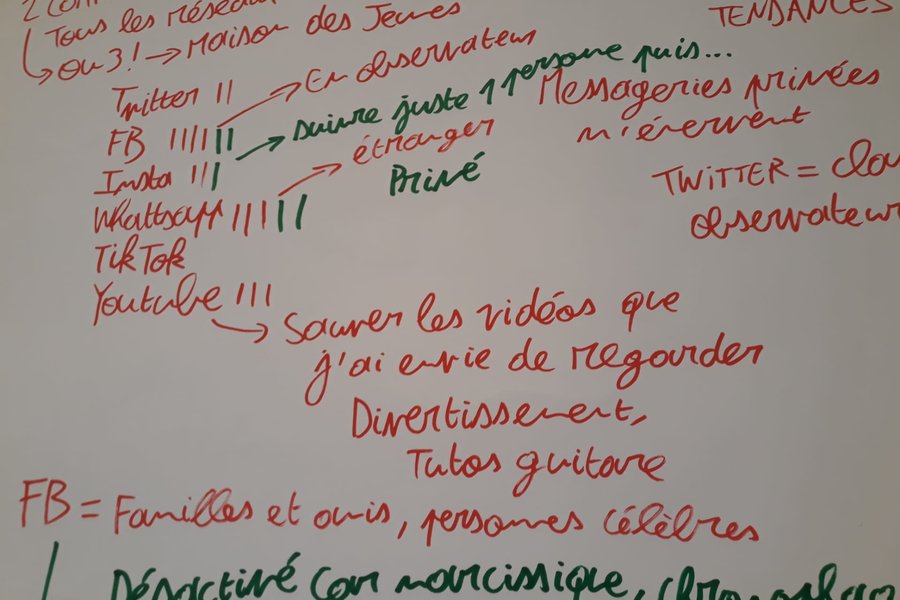 2 com
Tous les réseau
ou 3! → Maison des Jeunes
TENDANCES
Twitter ||
En observateur
FB |||| ||
suivre juste 1 personne puis...
Insta || |
étranger
Privé
Messageries privées
m'énervent
Whattsapp ||| ||
TWITTER =
observateur
TikTok
Youtube |||
Sauver les vidéos que
j'ai envie de regarder
Divertissement,
Tutos guitare
FB = Familles et amis, personnes célèbres
Désactivé car narcissique,